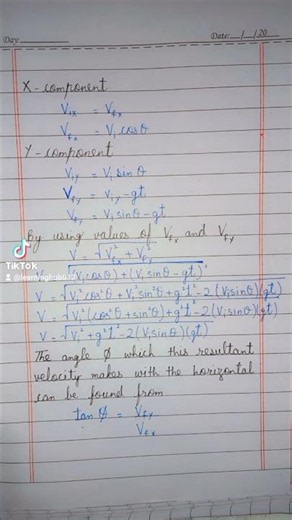 Day: Date: __/__/20__
X - component
V_ix = V_fx
V_fx = V_i cosθ
Y - component
V_iy = V_i sinθ
V_fy = V_iy - gt
V_fy = V_i sinθ - gt
By using values of V_fx and V_fy
V = √V²_fx + V²_fy
√(V_i cosθ) + (V_i sinθ - gt)²
V = √V_i² cos²θ + V_i² sin²θ + g²t² - 2(V_i sinθ)(gt)
V = √V_i²(cos²θ + sin²θ) + g²t² - 2(V_i sinθ)(gt)
V = √V_i² + g²t² - 2(V_i sinθ)(gt)
The angle Ø which this resultant
velocity makes with the horizontal
can be found from
tan Ø = V_fy / V_fx
TikTok